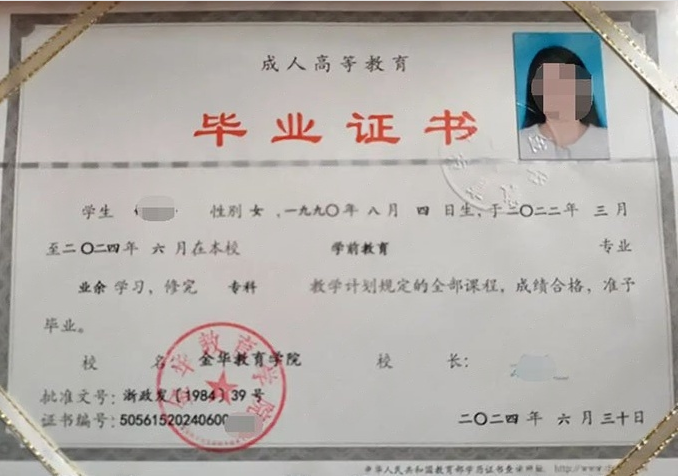 成人高等教育
毕业证书
学生 性别 女，一九九〇年 八 月 四 日生，于二〇二二年 三 月
至二〇二四年 六 月在本校 学前教育 专业
业余 学习，修完 专科 教学计划规定的全部课程，成绩合格，准予
毕业。
校 名：金华教育学院 校 长：
批准文号：浙政发〔1984〕39 号
证书编号：50561520240600
二〇二四年 六 月 三十 日
中华人民共和国教育部学历证书查询网址：http://www.